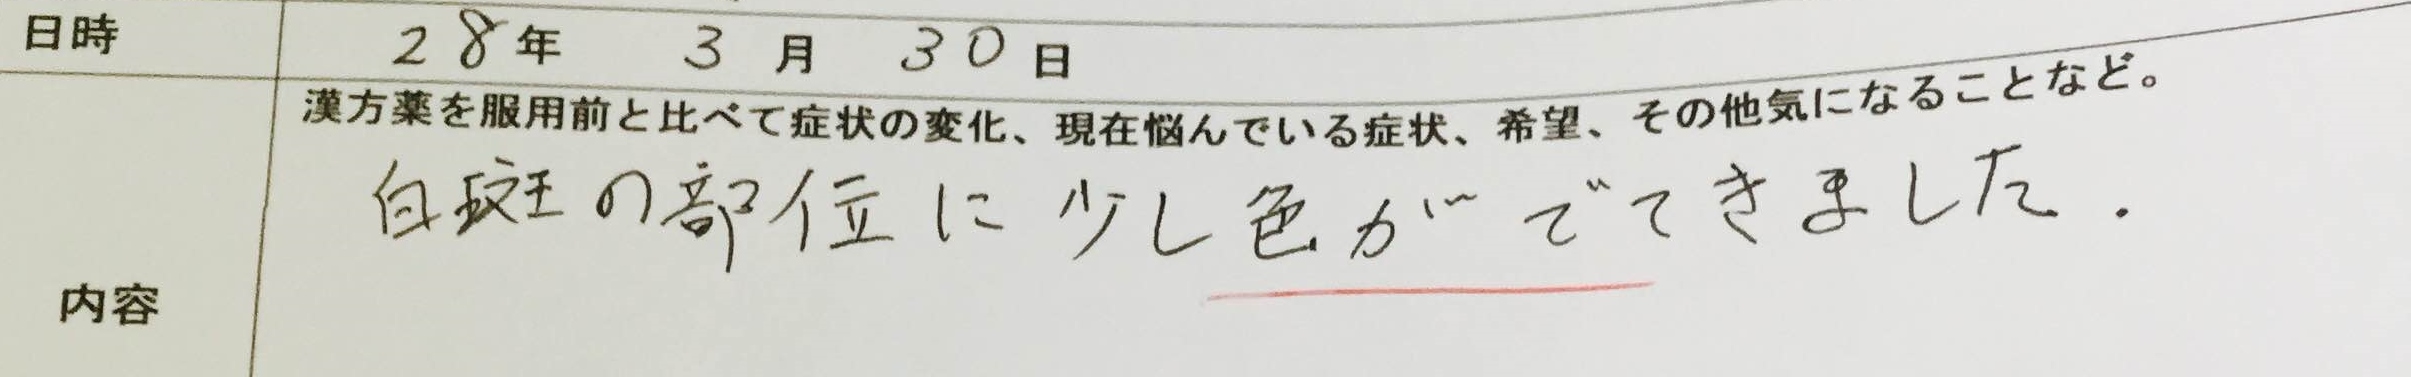 日時 28年 3月 30日
漢方薬を服用前と比べて症状の変化、現在悩んでいる症状、希望、その他気になることなど。
白斑の部位に少し色がでてきました.
内容